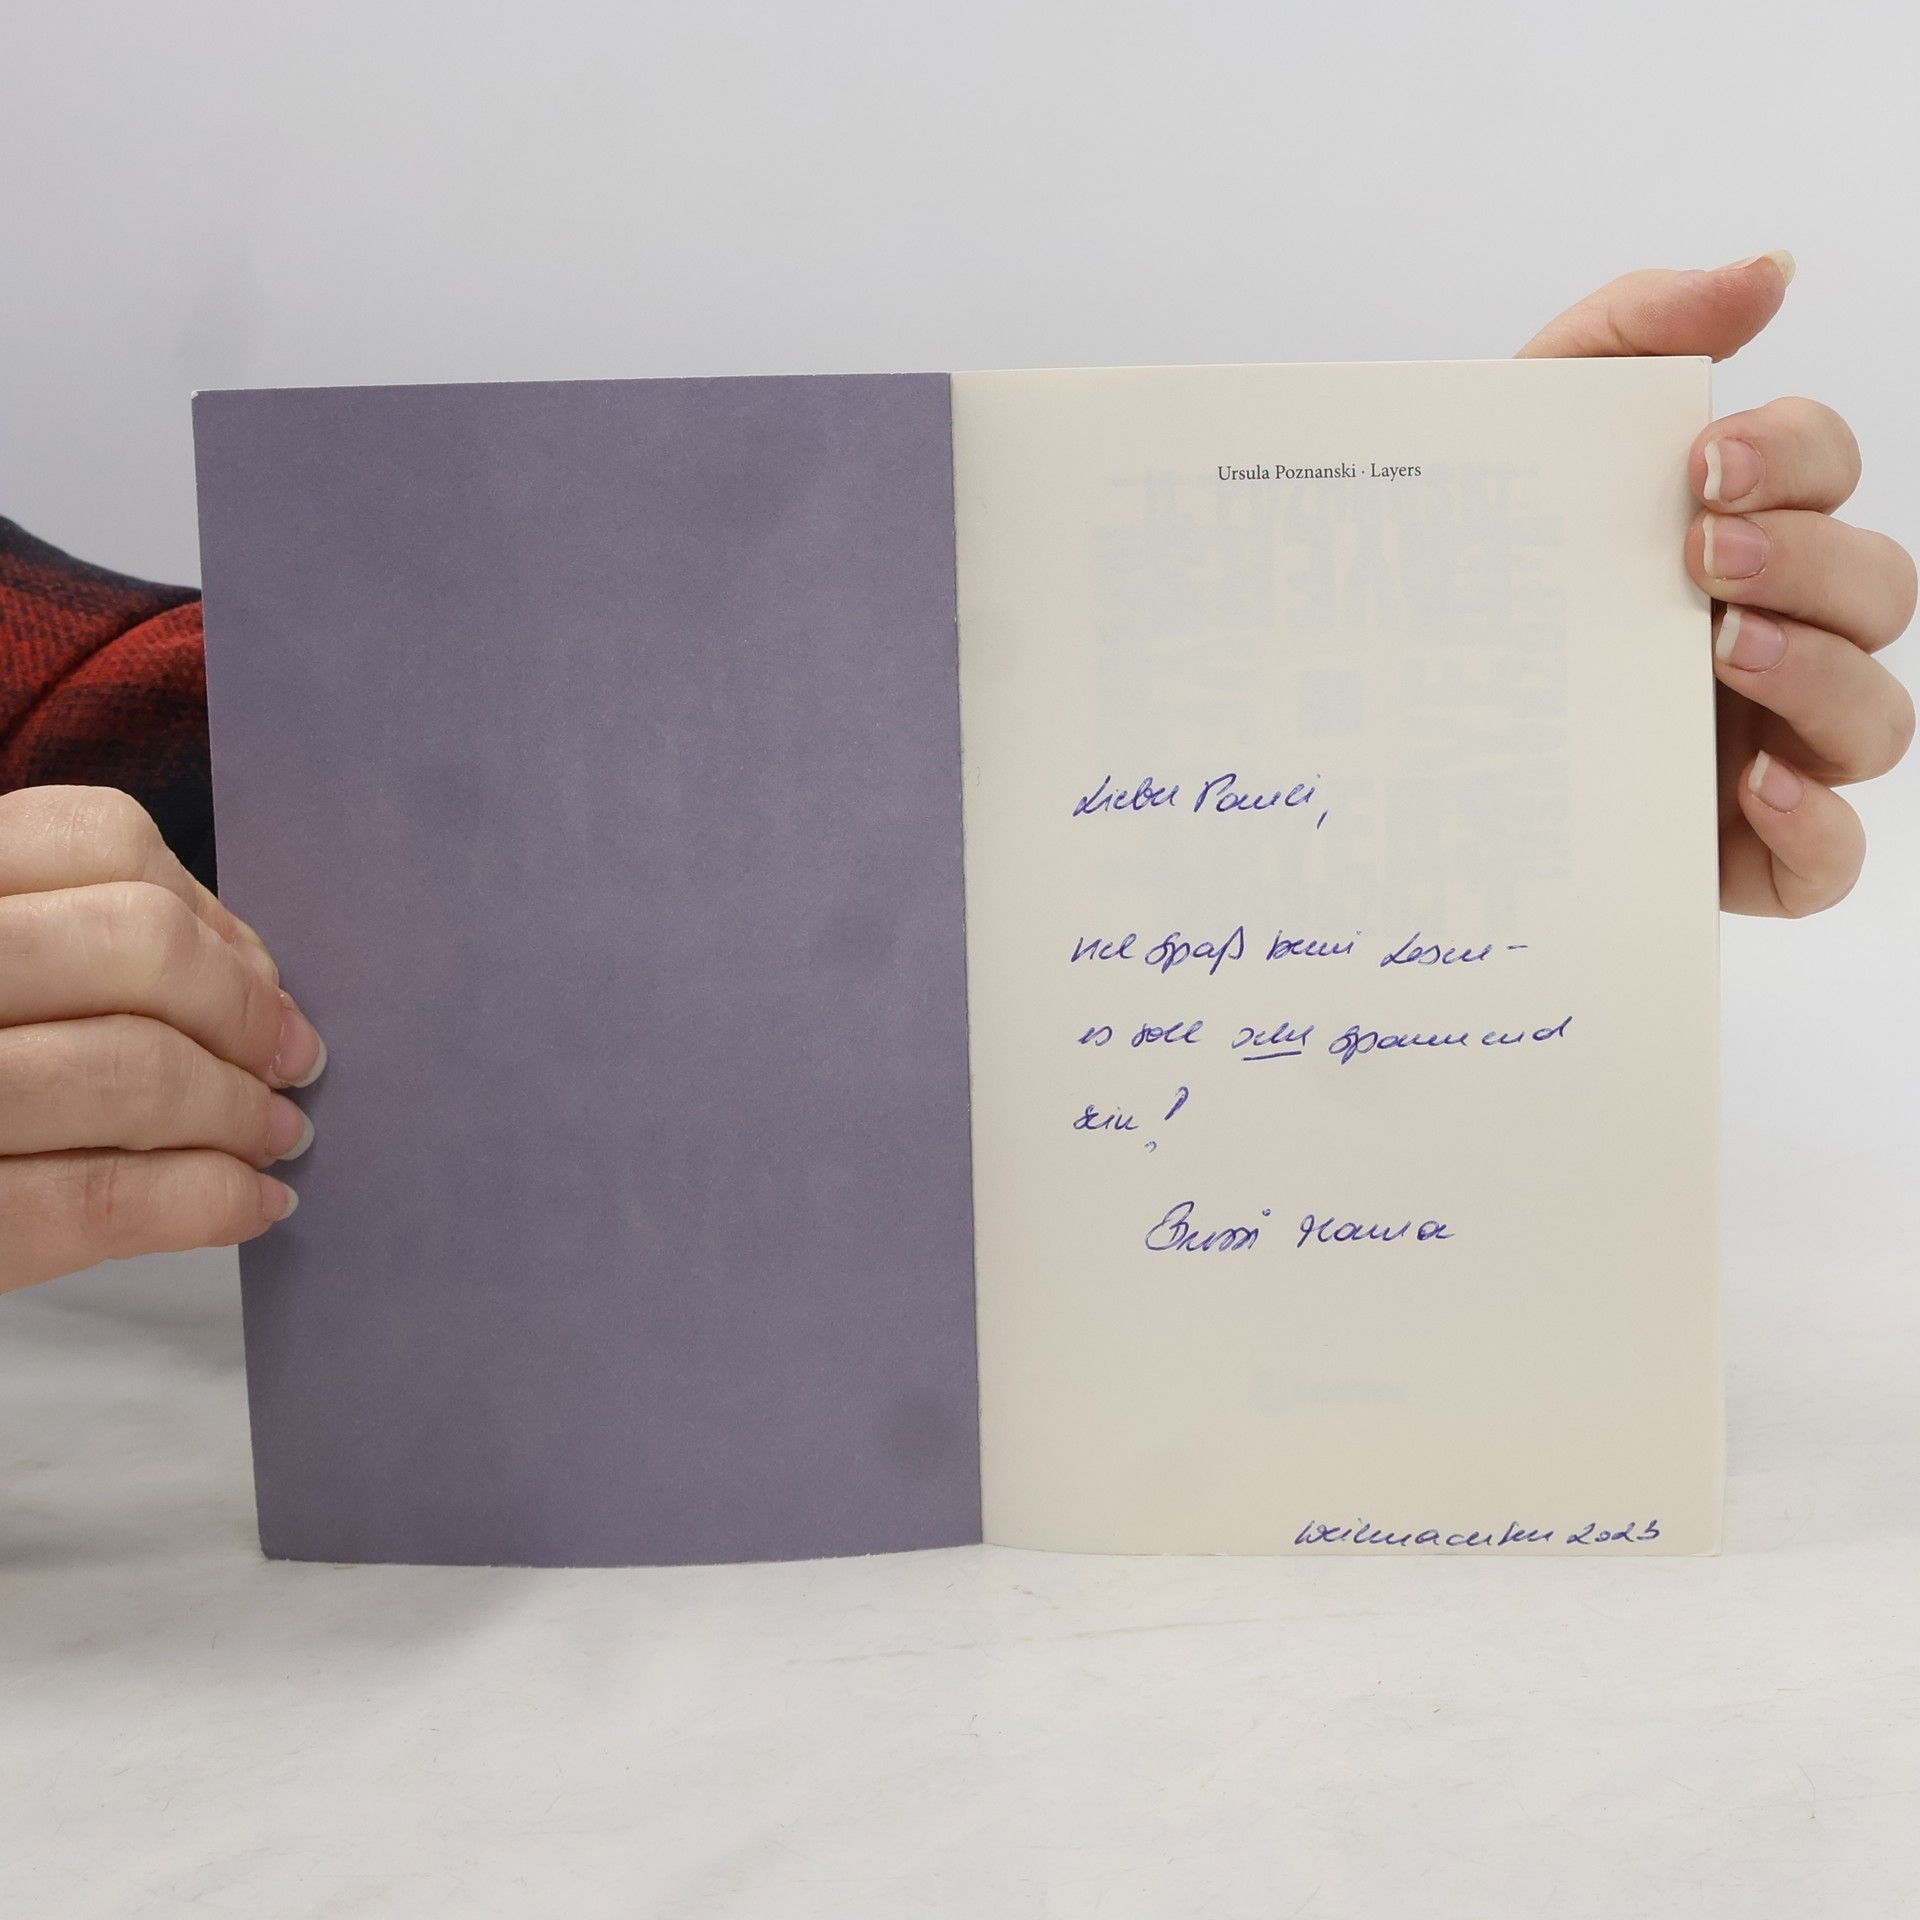 Ursula Poznanski · Layers
Lieber Pauli,
viel Spaß beim Lesen –
es soll sehr spannend
sein!
Bussi Mama
Weihnachten 2023